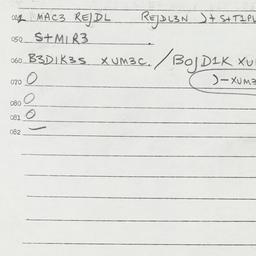 021 MAC3 REJDL REJDL3N )+ S+T1PL
050 S+MIR3
060 B3D1K3S XUM3C. / BOJD1K XU
070 O )-XUM3
080 O
081 O
082 —